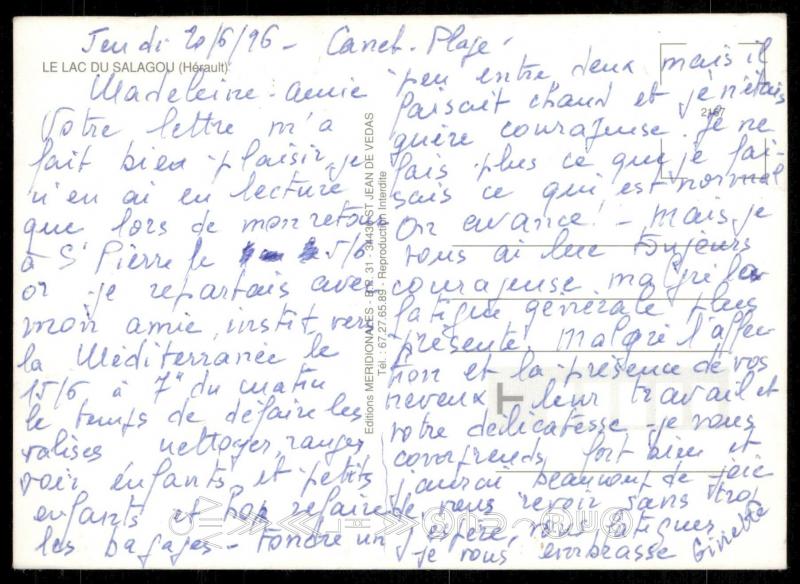 Jeudi 20/6/96 - Canet-Plage
LE LAC DU SALAGOU (Hérault)
Madeleine amie
Votre lettre m'a
fait bien plaisir, je
n'en ai eu lecture
que lors de mon retour
à St Pierre le 5/6
or je repartais avec
mon amie, instit, vers
la Méditerranée le
15/6 à 7h du matin
le temps de défaire les
valises nettoyer, ranger
voir enfants et petits
enfants et hop refaire
les bagages - tondre un
Editions MERIDIONALES - B.P. 31 - 34430 ST JEAN DE VEDAS
Tél. : 67.27.65.89 - Reproduction Interdite
2167
peu entre deux mais il
faisait chaud et je n'étais
guère courageuse. Je ne
fais plus ce que je fai-
sais ce qui est normal
On avance! - mais je
vous ai lue toujours
courageuse malgré la
fatigue générale plus
présente. Malgré l'affec
tion et la présence de vos
neveux leur travail et
votre délicatesse - je vous
comprends fort bien et
j'aurai beaucoup de joie
de vous revoir sans trop
j'espère, vous fatiguer
je vous embrasse Ginette